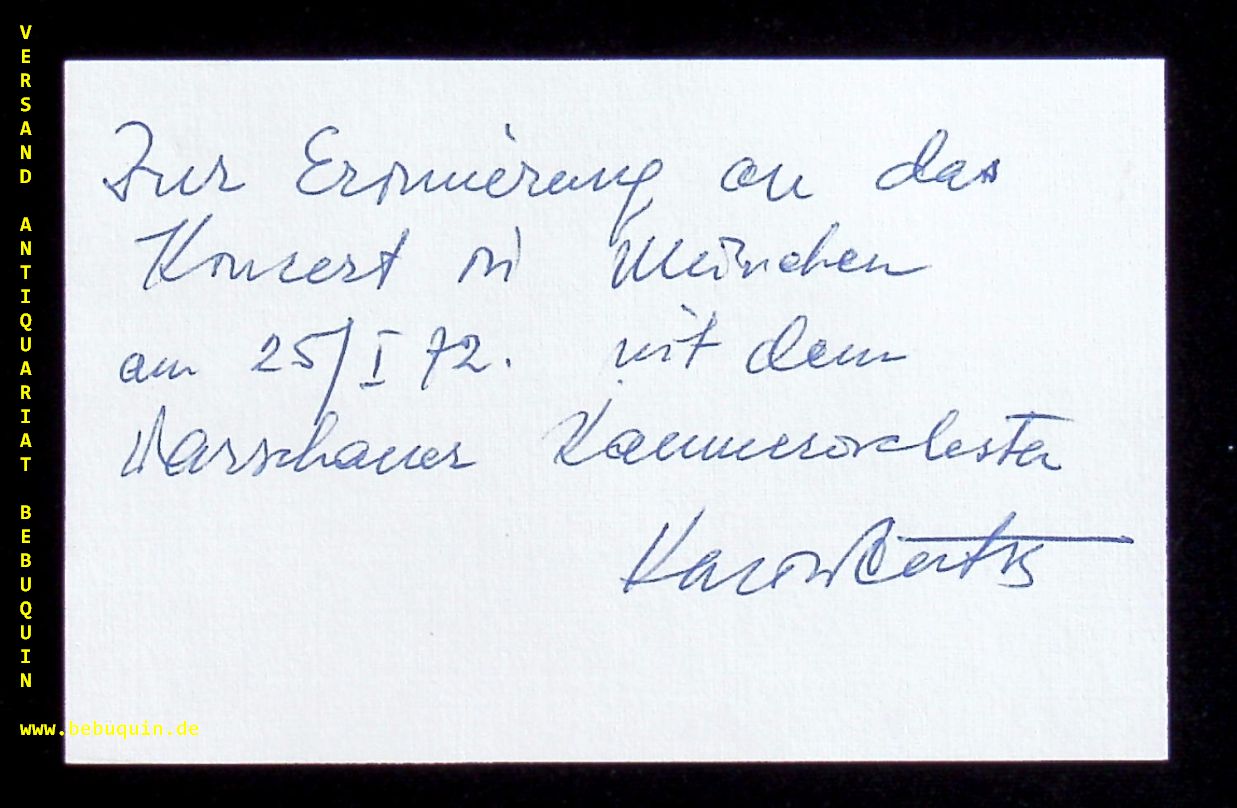 VERSAND ANTIQUARIAT BEBUQUIN
www.bebuquin.de
Zur Erinnerung an das
Konzert in München
am 25/I 72. mit dem
Warschauer Kammerorchester